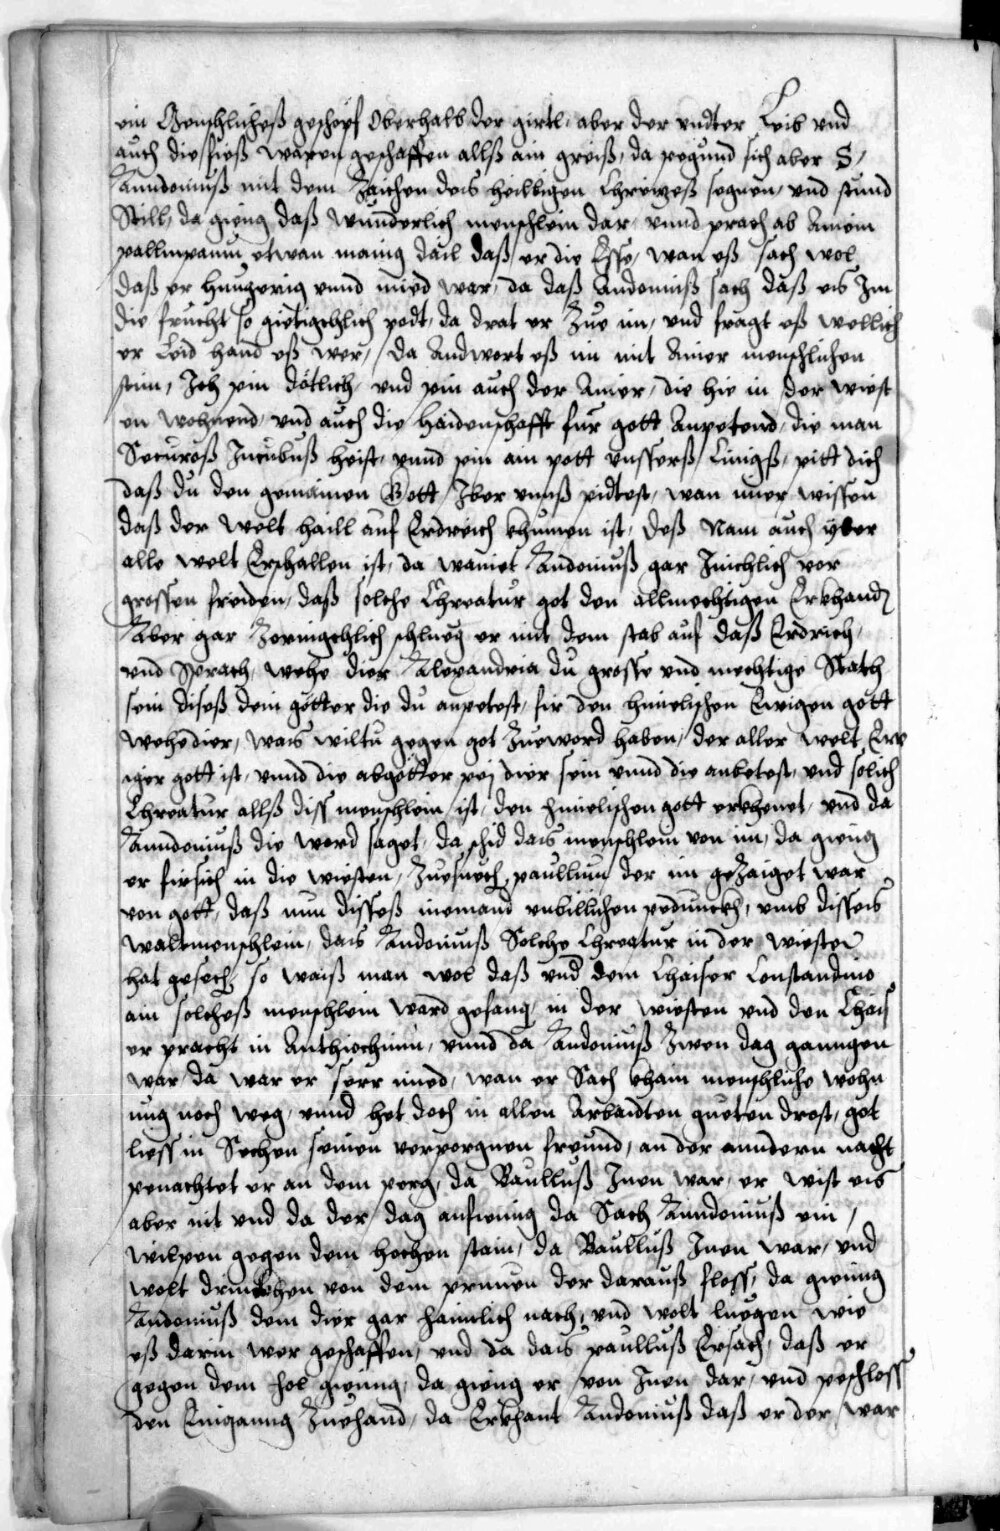 ein Menschlicheß geschöpf Oberhalb der girtl, aber der vndter Leib vnd
auch die fieß waren geschaffen allß ain greiß, da pegund sich aber S,
Anndoniuß mit dem Zaichen deis heilligen Chreizeß segnen, vnd stund
Still, da gieng daß wunderlich menschlein dar, vnnd prach ab Ainem
pallmpaum etwan manig dail daß er die Esse, wan eß sach wol
daß er hungerig vnnd mied war, da daß Andoniuß sach daß eis Im
die frucht so gietigchlich pedt, da drat er Zue im, vnd fragt eß wellich
er Leid hand eß wer, da Andwort eß im mit Ainer menschlichen
stim, Ich pin dötlich, vnd pin auch der Ainer, die hie in der wiest
en wohnend, vnd auch die Haidenschafft für gott Anpetend, die man
Secureß Incubuß heist, vnnd pin am pott vnsserß Linigß, pitt dich
daß du den gemainen Gott, Iber vnnß pidtest, wan mier wissen
daß der Welt haill auf Erdreich khumen ist, deß Nam auch yber
alle welt Erschallen ist, da wainet Andoniuß gar Inichlich vor
grossen freiden, daß solche Chreatur got den allmechtigen Erkhandt
Aber gar Zornigchlich schlueg er mit dem stab auf daß Erdrich,
vnd Sprach, wehe dier Alexandria du grosse vnd mechtige Statt
sein diseß dein götter die du anpetest, fir den himelischen Ewigen gott
wehe dier, wais wiltu gegen got Zueword haben, der aller welt Ew
iger gott ist, vnnd die abgötter pej dier sein vnnd die anbetest, vnd solich
Chreatur allß diss menschlein ist, den himelischen gott erkhenet, vnd da
Anndoniuß die word saget, da schid dais menschlein von im, da gieng
er firsich in die wiesten, Zuesuech, paullum der im geZaiget war
von gott, daß nun disseß niemand vnbillichen pedunckh, vmb disseis
waltmenschlein, dais Andoniuß Solche Chreatur in der wiesten
hat gesech, so waiß man wol daß vnd dem Chaiser Constandino
ain solcheß menschlein ward gefang, in der wiesten vnd den Chais
er pracht in Anthiochium, vnnd da Andoniuß Zwen dag ganngen
war, da war er serr mied, wan er Sach khain menschliche wohn
ung noch weg, vnnd het doch in allen Arbaidten gueten drost, got
liess in Sechen seinen verporgnen freund, an der anndern nacht
penachtet er an dem perg, da Baulluß Inen war, er wist eis
aber nit vnd da der dag anfieng da Sach Anndoniuß ein,
Wilpen gegen dem hochen stain, da Baulluß Inen war, vnd
wolt drinckhen von dem prunen der darauß floss, da gieng
Andoniuß dem dier gar haimlich nach, vnd wolt luegen wie
eß darin wer geschaffen, vnd da dais paulluß Ersach, daß er
gegen dem hol gieng, da gieng er von Inen dar, vnd peschloss
den Einganng Zuehand, da Erkhant Andoniuß daß er der war